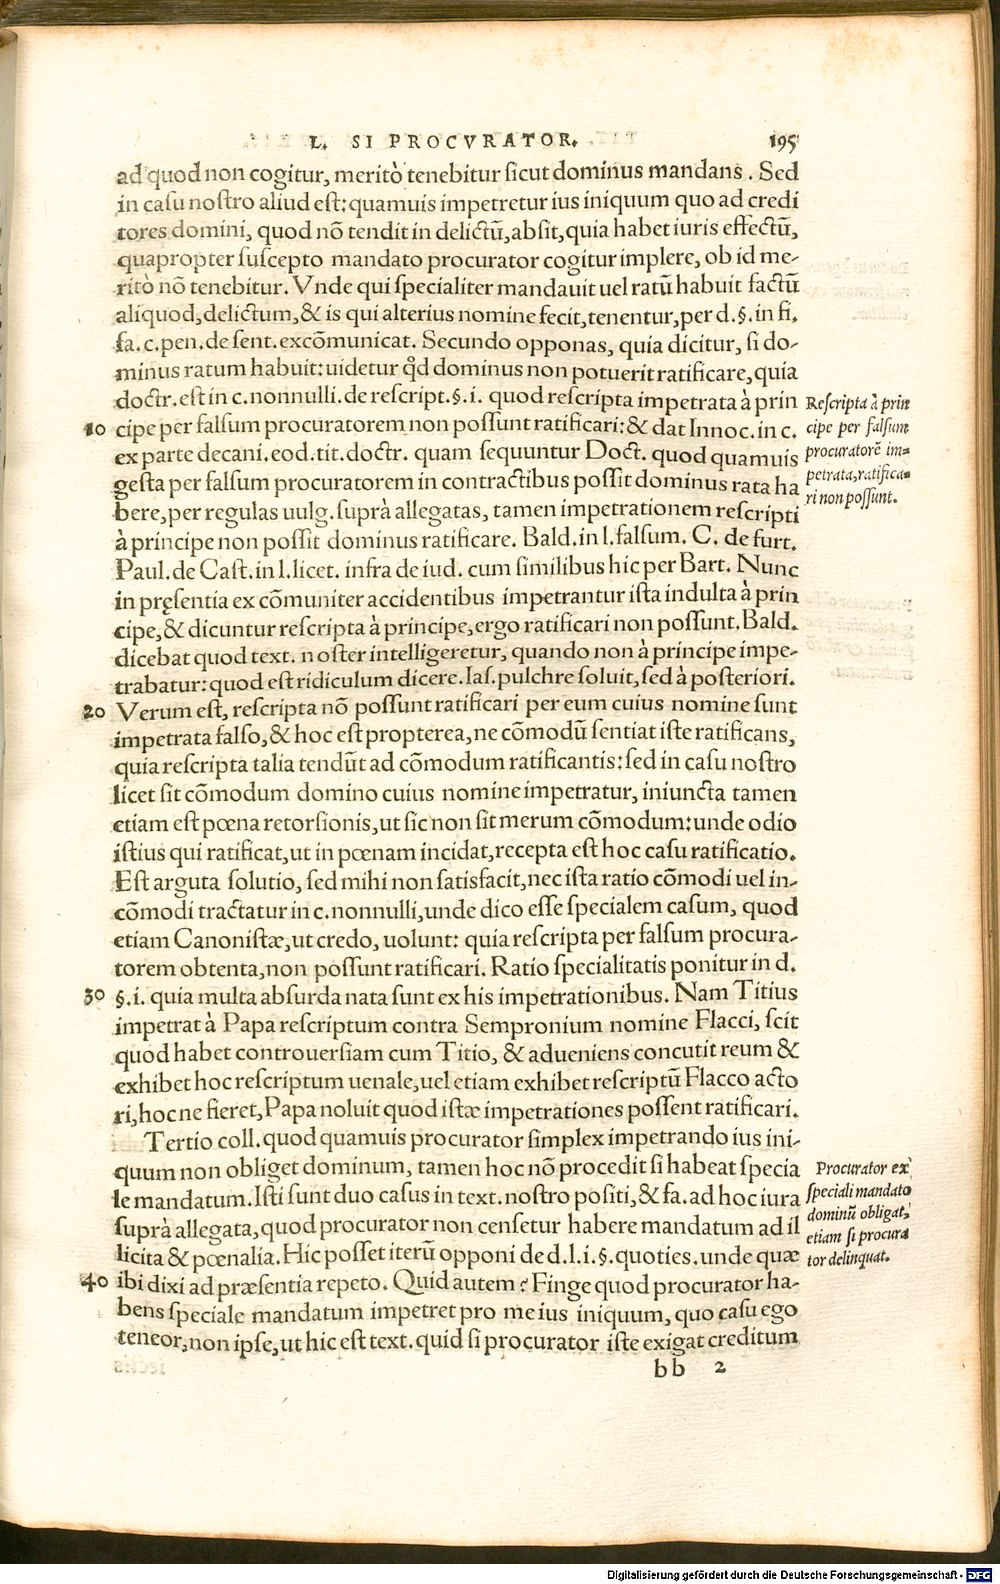 L. SI PROCVRATOR. 195
ad quod non cogitur, meritò tenebitur sicut dominus mandans. Sed
in casu nostro aliud est: quamuis impetretur ius iniquum quo ad credi
tores domini, quod nō tendit in delictū, absit, quia habet iuris effectū,
quapropter suscepto mandato procurator cogitur implere, ob id me-
ritò nō tenebitur. Vnde qui specialiter mandauit uel ratū habuit factū
aliquod, delictum, & is qui alterius nomine fecit, tenentur, per d. §. in fi.
fa. c. pen. de sent. excōmunicat. Secundo opponas, quia dicitur, si do-
minus ratum habuit: uidetur qd̄ dominus non potuerit ratificare, quia
doctr. est in c. nonnulli. de rescript. §. i. quod rescripta impetrata à prin
10 cipe per falsum procuratorem non possunt ratificari: & dat Innoc. in c.
ex parte decani. eod. tit. doctr. quam sequuntur Doct. quod quamuis
gesta per falsum procuratorem in contractibus possit dominus rata ha
bere, per regulas uulg. suprà allegatas, tamen impetrationem rescripti
à principe non possit dominus ratificare. Bald. in l. falsum. C. de furt.
Paul. de Cast. in l. licet. infra de iud. cum similibus hic per Bart. Nunc
in pręsentia ex cōmuniter accidentibus impetrantur ista indulta à prin
cipe, & dicuntur rescripta à principe, ergo ratificari non possunt. Bald.
dicebat quod text. noster intelligeretur, quando non à principe impe-
trabatur: quod est ridiculum dicere. Ias. pulchre soluit, sed à posteriori.
20 Verum est, rescripta nō possunt ratificari per eum cuius nomine sunt
impetrata falso, & hoc est propterea, ne cōmodū sentiat iste ratificans,
quia rescripta talia tendūt ad cōmodum ratificantis: sed in casu nostro
licet sit cōmodum domino cuius nomine impetratur, iniuncta tamen
etiam est pœna retorsionis, ut sic non sit merum cōmodum: unde odio
istius qui ratificat, ut in pœnam incidat, recepta est hoc casu ratificatio.
Est arguta solutio, sed mihi non satisfacit, nec ista ratio cōmodi uel in-
cōmodi tractatur in c. nonnulli, unde dico esse specialem casum, quod
etiam Canonistæ, ut credo, uolunt: quia rescripta per falsum procura-
torem obtenta, non possunt ratificari. Ratio specialitatis ponitur in d.
30 §. i. quia multa absurda nata sunt ex his impetrationibus. Nam Titius
impetrat à Papa rescriptum contra Sempronium nomine Flacci, scit
quod habet controuersiam cum Titio, & adueniens concutit reum &
exhibet hoc rescriptum uenale, uel etiam exhibet rescriptū Flacco acto
ri, hoc ne fieret, Papa noluit quod istæ impetrationes possent ratificari.
Tertio coll. quod quamuis procurator simplex impetrando ius ini-
quum non obliget dominum, tamen hoc nō procedit si habeat specia
le mandatum. Isti sunt duo casus in text. nostro positi, & fa. ad hoc iura
suprà allegata, quod procurator non censetur habere mandatum ad il
licita & pœnalia. Hic posset iterū opponi de d. l. i. §. quoties. unde quæ
40 ibi dixi ad præsentia repeto. Quid autem? Finge quod procurator ha-
bens speciale mandatum impetret pro me ius iniquum, quo casu ego
teneor, non ipse, ut hic est text. quid si procurator iste exigat creditum
bb 2
Rescripta à prin
cipe per falsum
procuratorē im-
petrata, ratifica-
ri non possunt.
Procurator ex
speciali mandato
dominū obligat,
etiam si procura
tor delinquat.
Digitalisierung gefördert durch die Deutsche Forschungsgemeinschaft - DFG